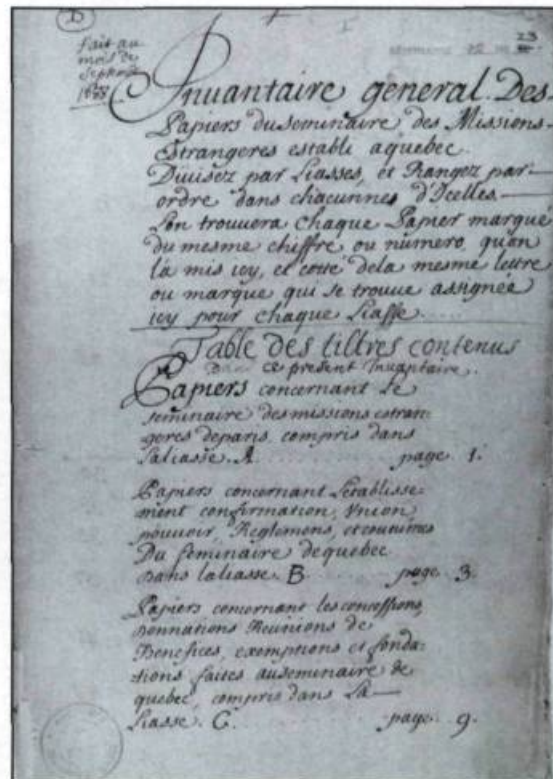 D
23
fait au
mois de
Septemb
1688
Inuantaire general. Des
Papiers du seminaire des Missions
Estrangeres establi aquebec.
Diuisez par Liasses, et Rangez par
ordre dans chacunnes d'Icelles.
Lon trouuera chaque Papier marque
du mesme chiffre ou numero, quon
la mis icy, et cotté dela mesme lettre
ou marque qui se trouue assignée
icy pour chaque Liasse.
Table des tiltres contenus
Dans ce present Inuantaire.
Papiers concernant Le
seminaire des missions estran-
geres deparis, compris dans
laliasse. A. page 1.
Papiers concernant Letablisse-
ment confirmation, Vnion,
pouuoir, Reglemens, et coutumes
Du Seminaire dequebec
Dans laliasse B. page 3.
Papiers concernant les concessions,
Donnations Reunions de
Benefices, exemptions et fonda-
tions faites auseminaire de
quebec, compris dans La
Liasse. C. page 9.